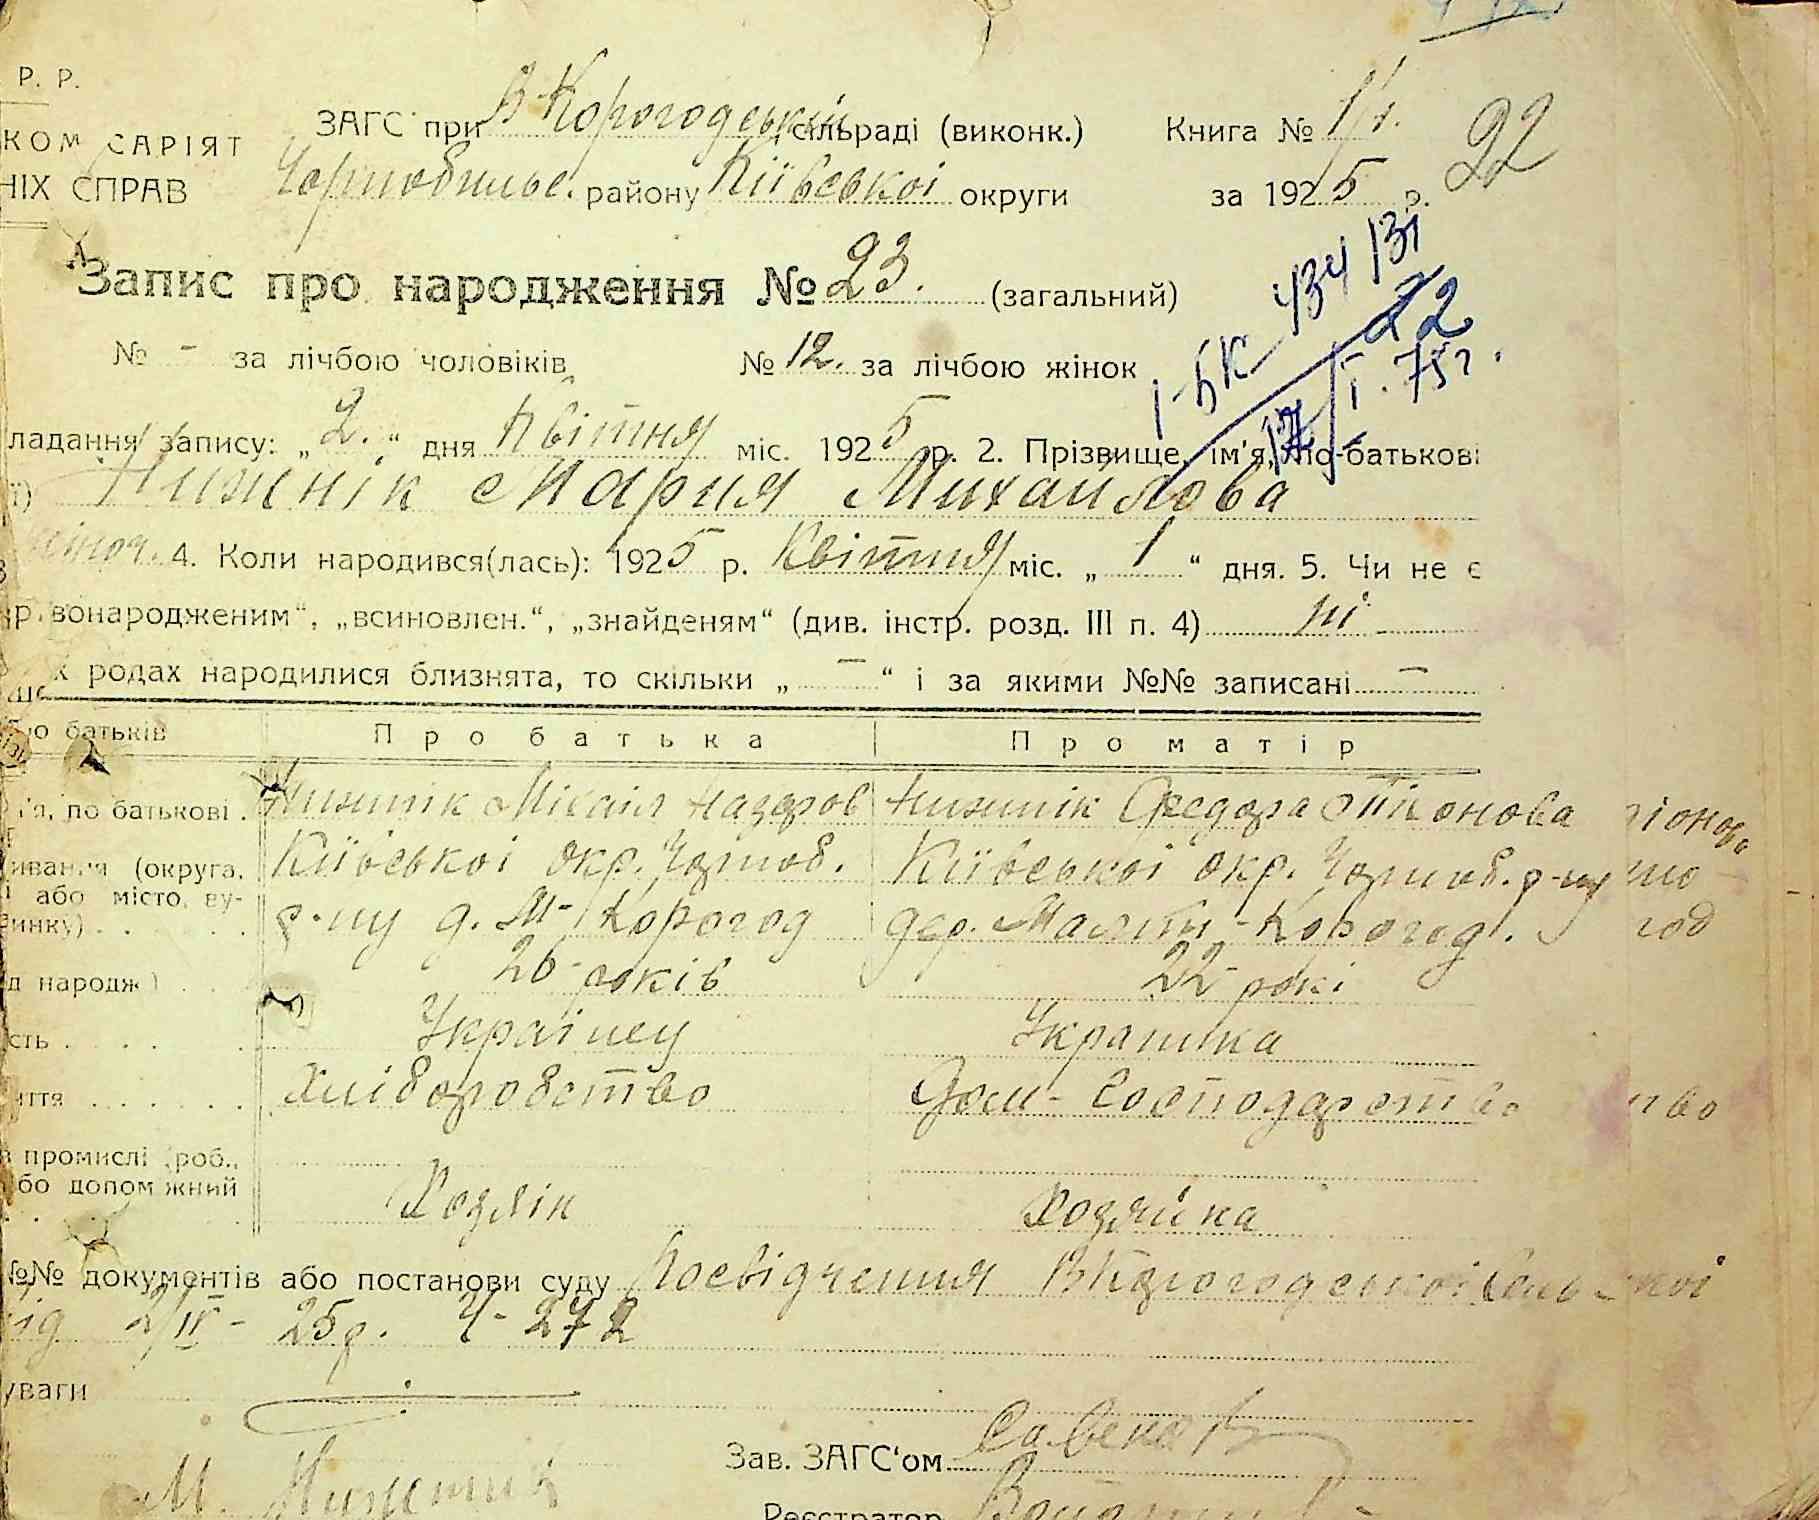 Р. Р.
КОМ САРІЯТ ЗАГС при В-Корогодській сільраді (виконк.) Книга № 1/1. 22
НІХ СПРАВ Чорнобильс. району Київськоі округи за 1925 р.
Запис про народження № 23. (загальний)
№ - за лічбою чоловіків № 12. за лічбою жінок
1-БК 434131
22
17/I. 75г.
ладання запису: „2.“ дня Квітня міс. 1925 р. 2. Прізвище, ім'я, по-батькові
ї) Нижнік Мария Михайлова
жіноч. 4. Коли народився(лась): 1925 р. Квітня міс. „ 1 “ дня. 5. Чи не є
вонародженим“, „всиновлен.“, „знайденям“ (див. інстр. розд. III п. 4) ні
х родах народилися близнята, то скільки „ — “ і за якими №№ записані —
ро батьків Про батька Про матір
'я, по батькові . Нижник Міхаіл Назаров Нижнік Федора Тіхонова
ивання (округа, Київськоі окр. Чорноб. Київськоі окр. Чорноб. р-ну
і або місто, ву- р-ну д. М-Корогод дер. Малий-Корогод.
инку) . год
д народж.) 26-років 22-рокі
сть . . . . Українец Украінка
иття . . . . . . Хліборобство Дом-господарство тво
в промислі (роб.,
бо допоміжний Хозяін Хозяйка
№№ документів або постанови суду Посвідчення ВКорогодськоі сільської
від 2/IV - 25р. Ч-272
уваги —
Зав. ЗАГС'ом
М. Нижник
Реєстратор